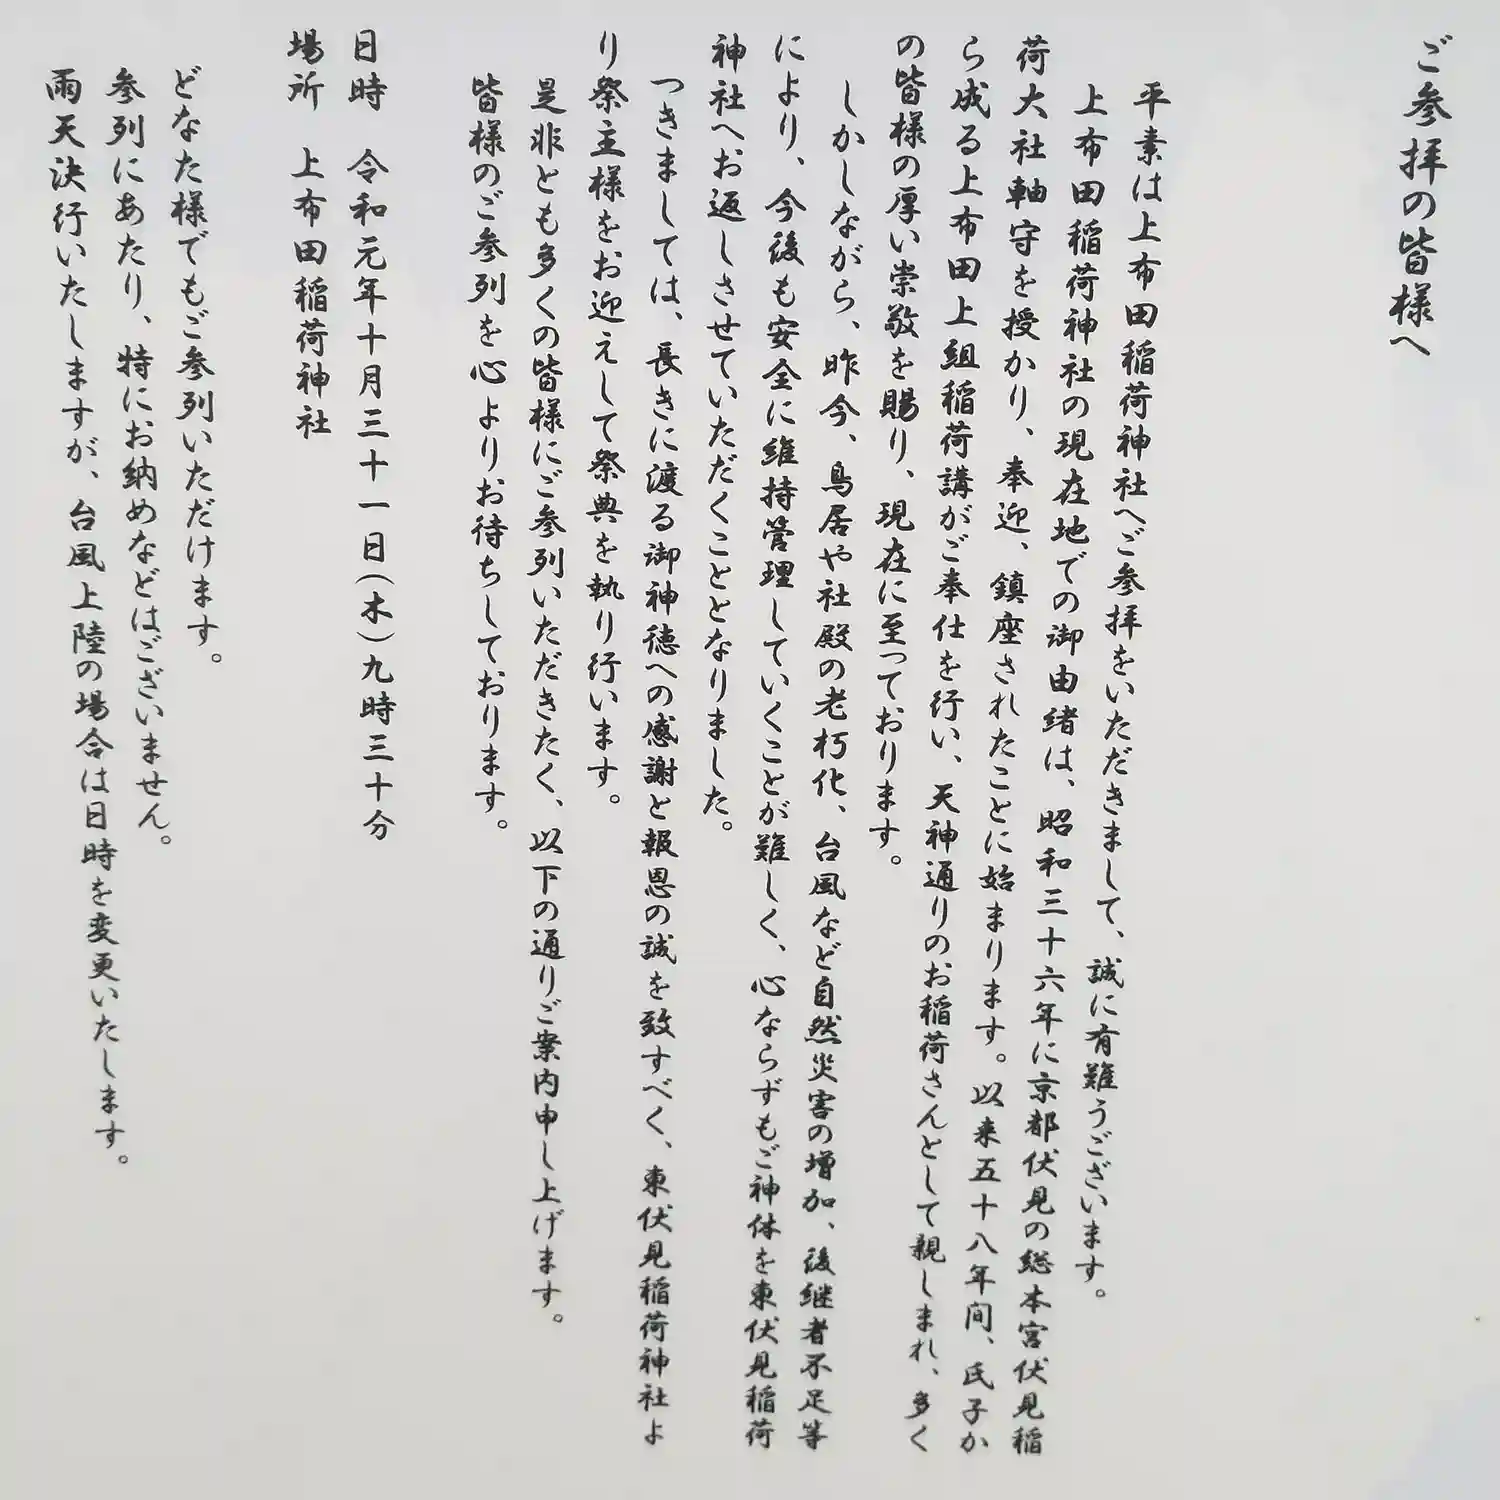 ご参拝の皆様へ
平素は上布田稲荷神社へご参拝をいただきまして、誠に有難うございます。
上布田稲荷神社の現在地での御由緒は、昭和三十六年に京都伏見の総本宮伏見稲
荷大社軸守を授かり、奉迎、鎮座されたことに始まります。以来五十八年間、氏子か
ら成る上布田上組稲荷講がご奉仕を行い、天神通りのお稲荷さんとして親しまれ、多く
の皆様の厚い崇敬を賜り、現在に至っております。
しかしながら、昨今、鳥居や社殿の老朽化、台風など自然災害の増加、後継者不足等
により、今後も安全に維持管理していくことが難しく、心ならずもご神体を東伏見稲荷
神社へお返しさせていただくこととなりました。
つきましては、長きに渡る御神徳への感謝と報恩の誠を致すべく、東伏見稲荷神社よ
り祭主様をお迎えして祭典を執り行います。
是非とも多くの皆様にご参列いただきたく、以下の通りご案内申し上げます。
皆様のご参列を心よりお待ちしております。
日時 令和元年十月三十一日(木)九時三十分
場所 上布田稲荷神社
どなた様でもご参列いただけます。
参列にあたり、特にお納めなどはございません。
雨天決行いたしますが、台風上陸の場合は日時を変更いたします。